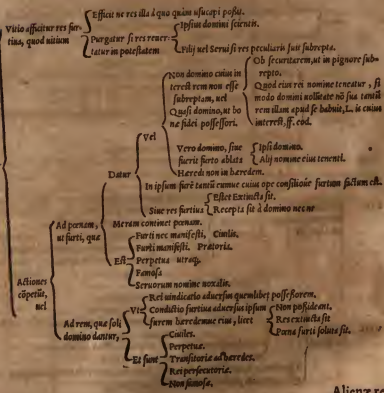 Vitio afficitur res fur-
tiua, quod uitium
Efficit ne res illa à quo quàm usucepi possit.
Purgatur si res reuer-
tatur in potestatem
Ipsius domini scientis.
Filij uel Serui si res peculiaris fuit subrepta.
Actiones
cõpetũt,
uel
Ad pœnam,
ut furti, quæ
Datur
Vel
Non domino cuius in
terest rem non esse
subreptam, uel
Quasi domino, ut bo
næ fidei possessori.
Ob securitatem, ut in pignore sub-
repto.
Quod eius rei nomine teneatur, si
modo domini uoluntate nõ sua tantũ
rem illam apud se habuit, L. is cuius
interest, ff. eod.
Vero domino, siue
fuerit furto ablata
Ipsi domino.
Alij nomine eius tenenti.
Heredi non in hæredem.
In ipsum furẽ tantũ cumue cuius ope consilioue furtum factum est.
Siue res furtiua
Esset Extincta sit.
Recepta sit à domino nec ne
Meram continet pœnam.
Est
Furti nec manifesti, Ciuilis.
Furti manifesti. Prætoris.
Perpetua utraq;
Famosa
Seruorum nomine noxalis.
Ad rem, quæ soli
domino dantur,
Vt
Rei uindicatio aduersus quemlibet possessorem.
Condictio furtiua aduersus ipsum
furem hæredemue eius, licet
Non possideant.
Res extincta sit
Pœna furti soluta sit.
Et sunt
Ciuiles.
Perpetuæ.
Transitoriæ ad hæredes.
Rei persecutoriæ.
Non famosæ.
Alienæ re